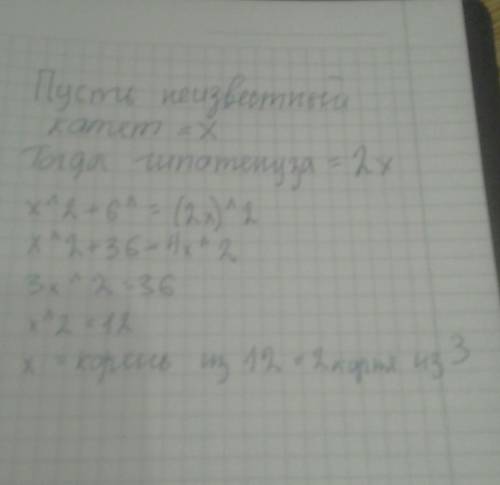 Пусть неизвестный
катет = x
Тогда гипотенуза = 2x
x^2 + 6^ = (2x)^2
x^2 + 36 = 4x^2
3x^2 = 36
x^2 = 12
x = корень из 12 = 2 корня из 3